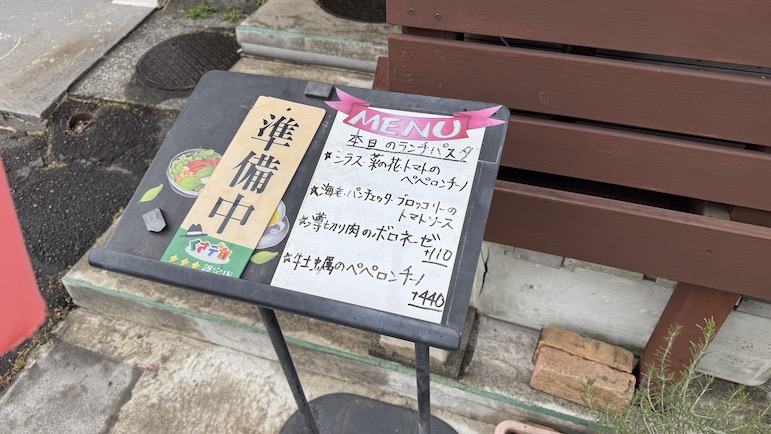 準備中
MENU
本日のランチパスタ
☆シラス・菜の花・トマトの
ペペロンチーノ
☆海老・パンチェッタ・ブロッコリーの
トマトソース
切り肉のボロネーゼ
+110
☆牡蠣のペペロンチーノ
+440